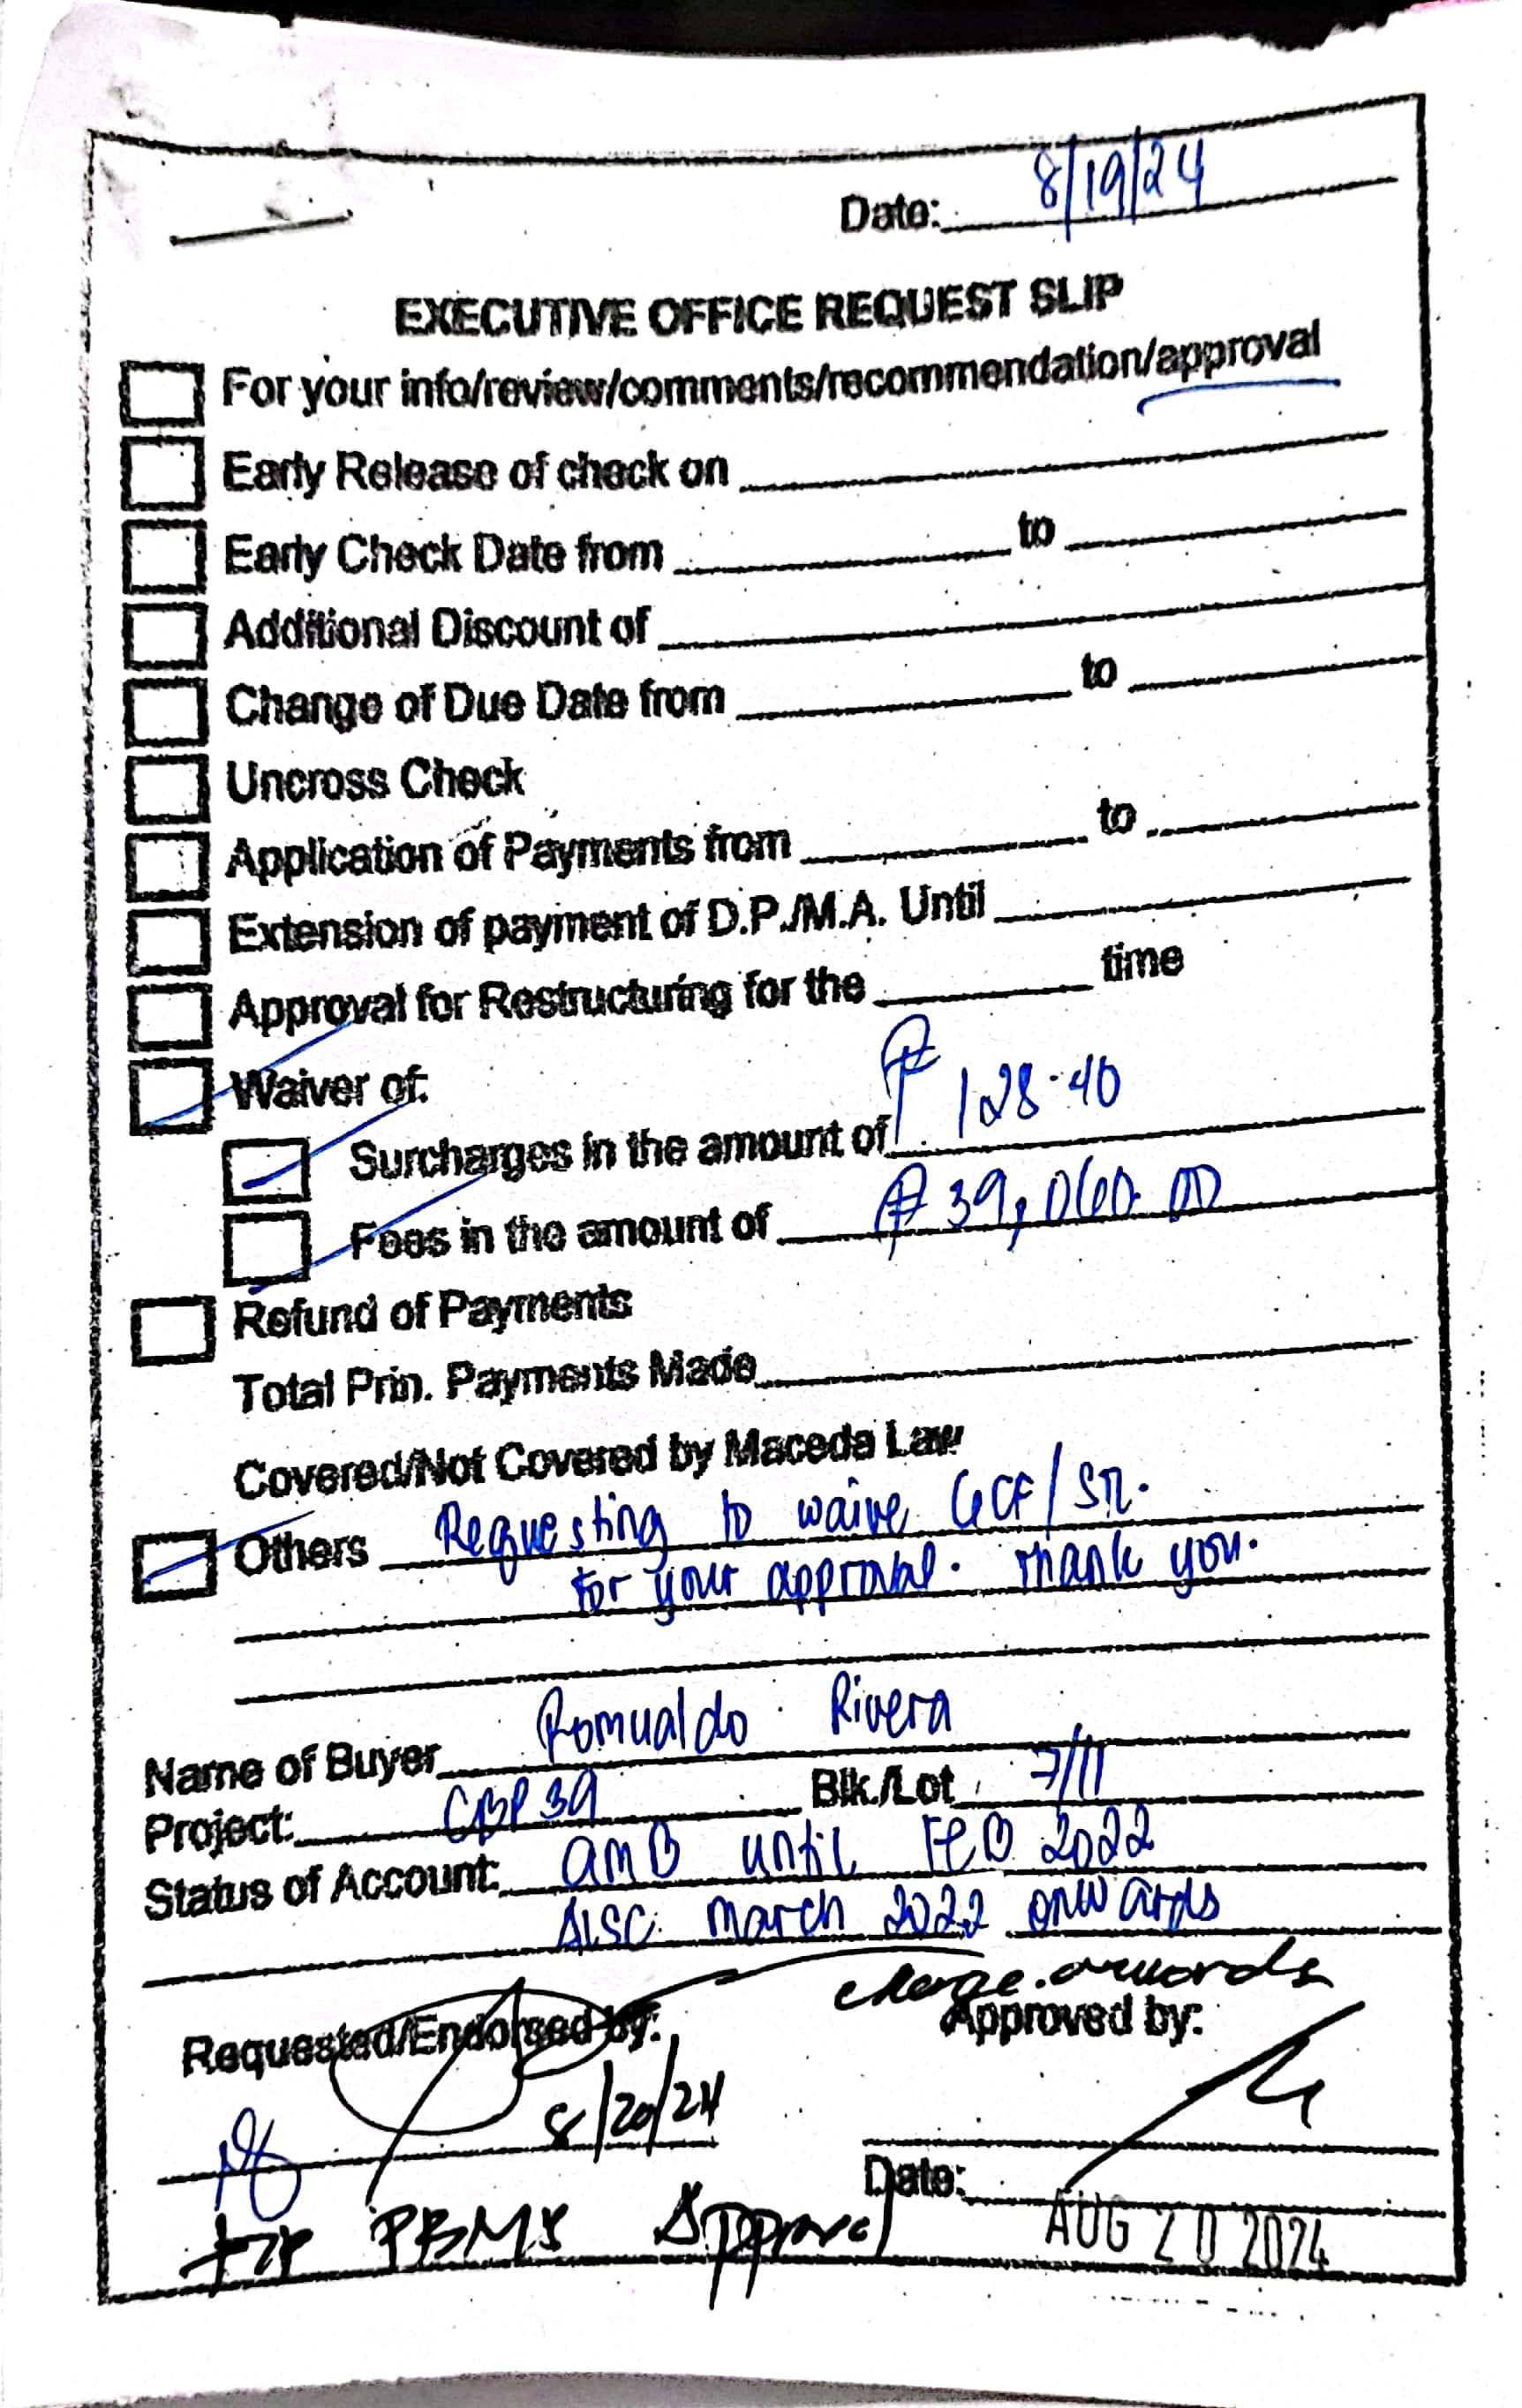 Date: 8/19/24
EXECUTIVE OFFICE REQUEST SLIP
For your info/review/comments/recommendation/approval
Early Release of check on
Early Check Date from to
Additional Discount of
Change of Due Date from to
Uncross Check
Application of Payments from to
Extension of payment of D.P./M.A. Until
Approval for Restructuring for the time
Waiver of:
Surcharges in the amount of ₱ 128.40
Fees in the amount of ₱ 39,060.00
Refund of Payments
Total Prin. Payments Made
Covered/Not Covered by Maceda Law
Others Requesting to waive GCF/
for your approval. Thank you.
Name of Buyer Romualdo Rivera
Project: CBP 39 Blk./Lot 7/11
Status of Account: until FEB 2022
March 2022 onwards
onwards
Requested/Endorsed by: Approved by:
8/20/24
Date: AUG 20 2024
for PBMS Approval